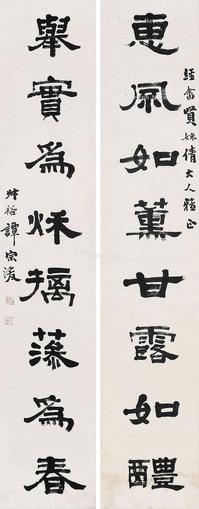 經畬賢妹倩大人雅正
惠風如薰甘露如醴
舉實為秋摛藻為春
叔裕譚宗浚